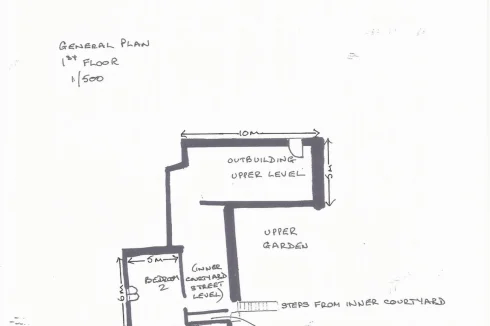 GENERAL PLAN
1ST FLOOR
1/500
10M
OUTBUILDING
UPPER LEVEL
5M
UPPER
GARDEN
5M
BEDROOM
2
(INNER
COURTYARD
STREET
LEVEL)
6M
STEPS FROM INNER COURTYARD